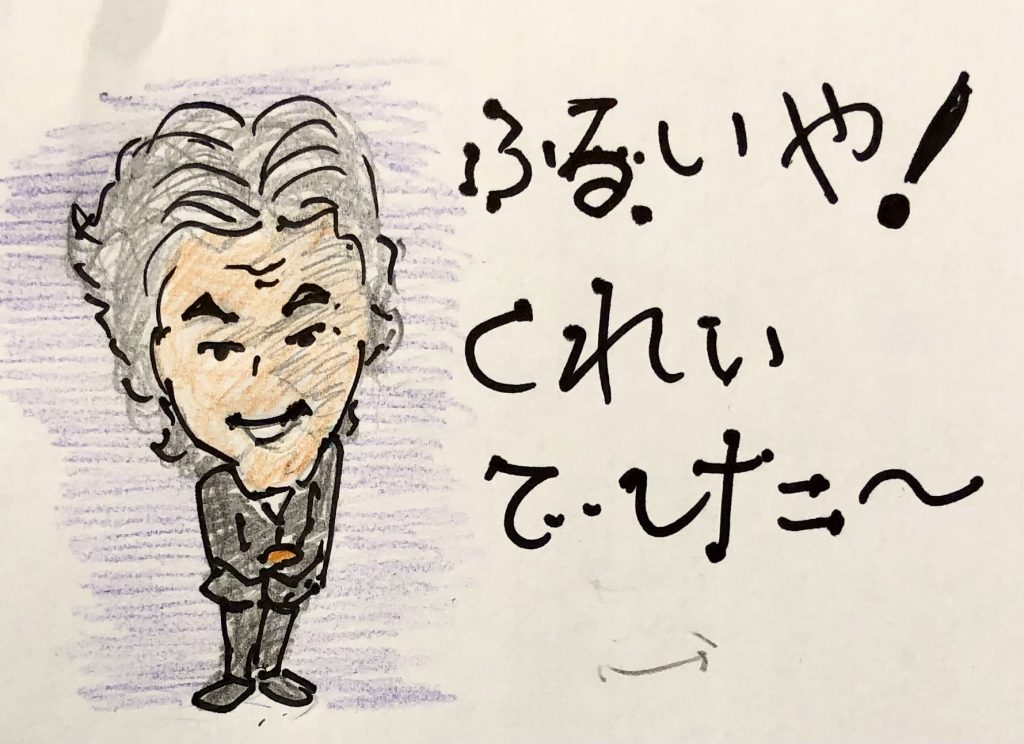 ふるいや！
くれい
でした〜